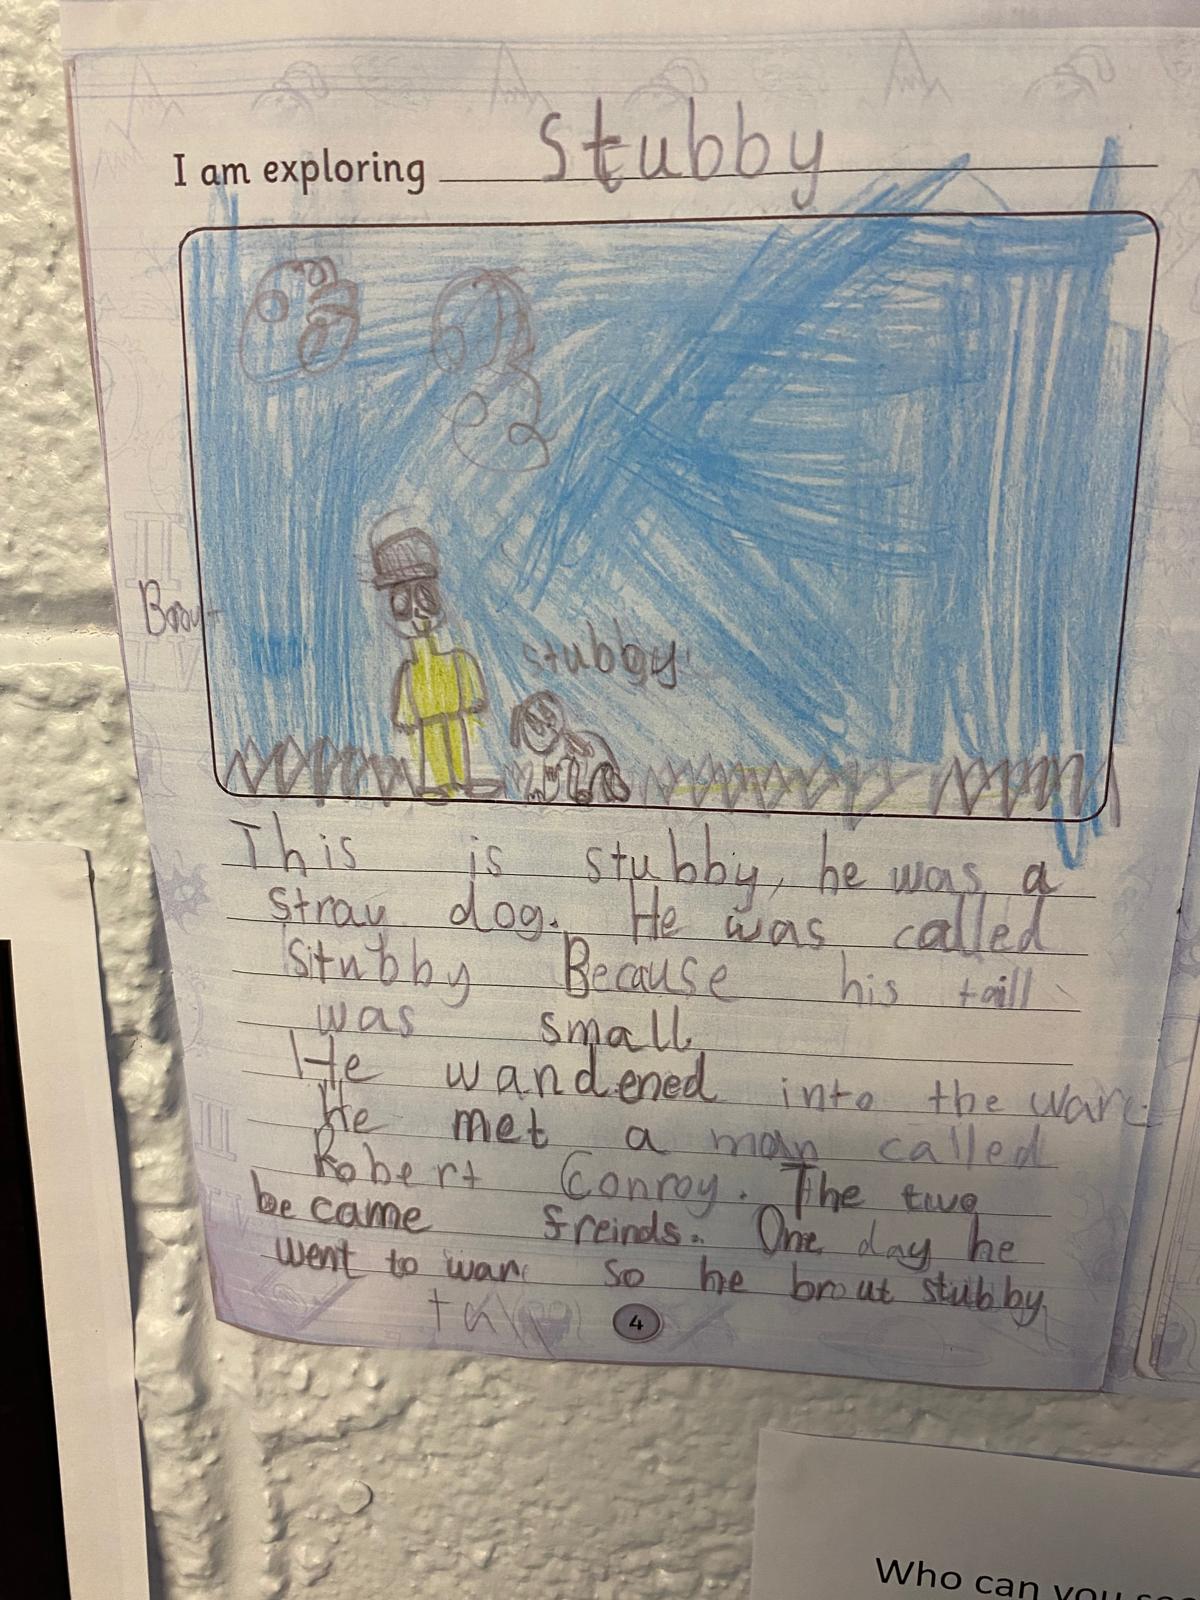 I am exploring Stubby
stubby
This is stubby, he was a
stray dog. He was called
Stubby Because his taill
was small
He wandened into the ware
He met a man called
Robert Conroy. The two
became freinds. One day he
went to war so he brout stubby
4
Who can you see